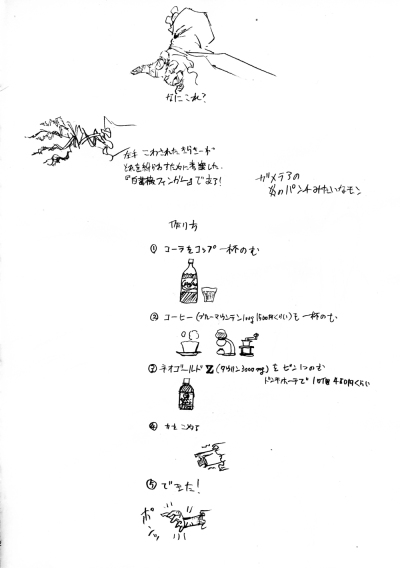 なにこれ?
左手 こわされた
『自蓄
フィンガー』でます!
ガメラ3の
炎のパンチみたいなモン
作り方
① コーラをコップ一杯のむ
② コーヒー(ブルーマウンテン100g 1500円くらい)を一杯のむ
③ ネオゴールドZ(タウリン3000mg)をビン1つのむ
ドンキホーテで 480円くらい
④ 力をこめる
⑤ できた!
ポンッ